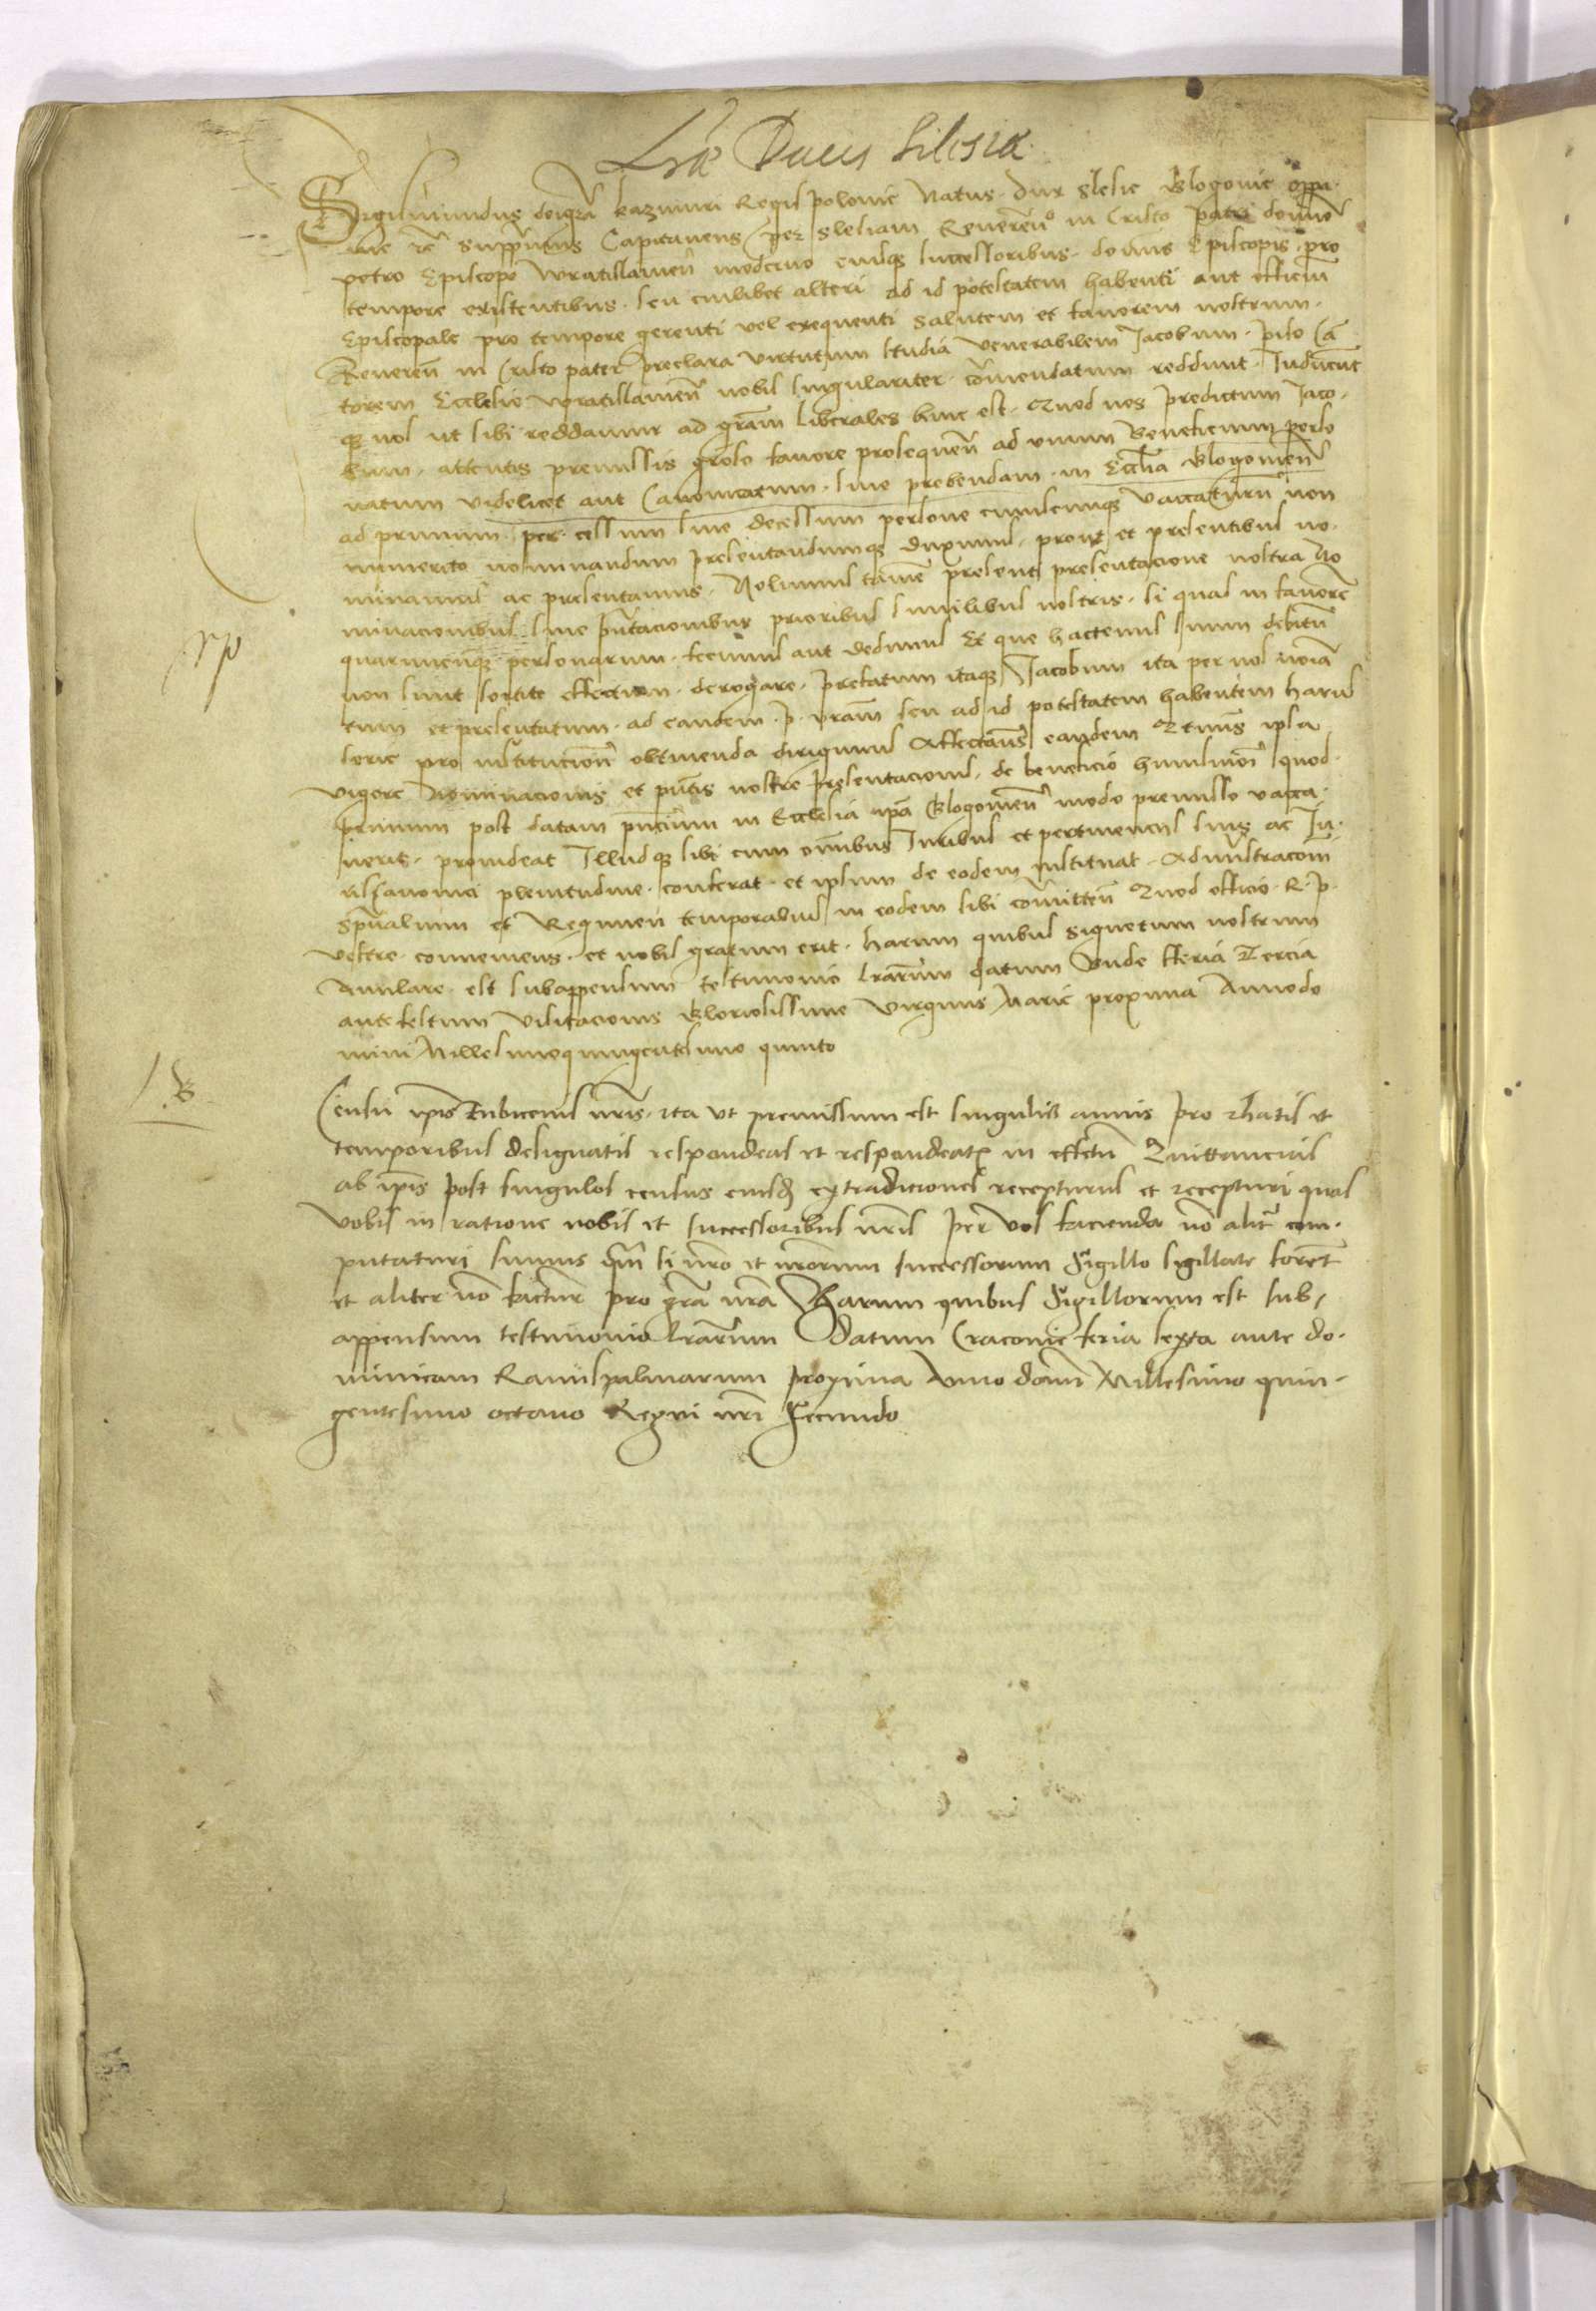 Lrae Ducis Silesiae
Sigismundus dei gra Kazimiri Regis polonie Natus dux slesie Glogovie oppa-
vie etc suppremus Capitaneus per slesiam Reverendo in Cristo patri domino
petro Episcopo wratislavien moderno eiusque successoribus dominis Episcopis pro
tempore existentibus seu cuilibet alteri ad id potestatem habenti aut officium
Episcopale pro tempore gerenti vel exequenti salutem et favorem nostrum
Reveren in Cristo pater preclara virtutum studia venerabilem Jacobum piso Can
torem Ecclesie wratislavien nobis singulariter comendatum reddunt Inducunt
que nos ut sibi reddamur ad gram liberales hinc est Quod nos predictum Jaco-
bum attentis premissis grose favore prosequen ad unum Beneficium perso
natum videlicet aut Canonicatum sive prebendam in Ecclia Glogovien
ad primum per cessum sive decessum persone cuiuscumque vaccaturum non
immerito nominandum presentandumque duximus prout et presentibus no-
minamus ac presentamus Nolumus tamen presenti presentacione nostra No
minacionibus sive pntacionibus prioribus similibus nostris si quas in favorem
quarumcunque personarum fecimus aut dedimus Et que hactenus suum debitum
non sunt sortite effectum derogare prefatum itaque Jacobum ita per nos noia
tum et presentatum ad eandem p vram seu ad id potestatem habentem harum
serie pro institucion obtinenda dirigimus Affectantes eandem Qtinus ipsa
vigore Nominacionis et pntis nostre presentacionis de beneficio huiusmoi quod
primum post datam pncium in Ecclesia ipa Glogovien modo premisso vacca-
verit provideat Illudque sibi cum omnibus Juribus et pertinenciis suis ac Ju-
ris canonici plenitudine conferat et ipsum de eodem instituat Administracom
spualium et Regimen temporalium in eodem sibi comitten Quod officio R p
vestre conveniens et nobis gratum erit harum quibus signetum nostrum
Anulare est subappensum testimonio lrarum datum Bude fferia Tercia
ante festum visitacionis Gloriosissime virginis Marie proxima Anno do
mini Millesimo quingentesimo quinto
Censu ipis Tubicenis nris ita ut premissum est singulis annis pro rhatis et
temporibus designatis respondeas et respondeatis in effectu Quittancias
ab ipis post singulos census eiusdem extradiciones recepturus et recepturi quas
vobis in ratione nobis et successoribus nris per vos facienda no alitr com-
putaturi sumus qm si nro et nrorum successorum Sigillo sigillate forent
et aliter no factur pro gra nra Harum quibus Sigillorum est sub-
appensum testimonio lrarum Datum Cracovie feria sexta ante do-
minicam Ramispalmarum proxima Anno domi Millesimo quin-
gentesimo octavo Regni nri Secundo